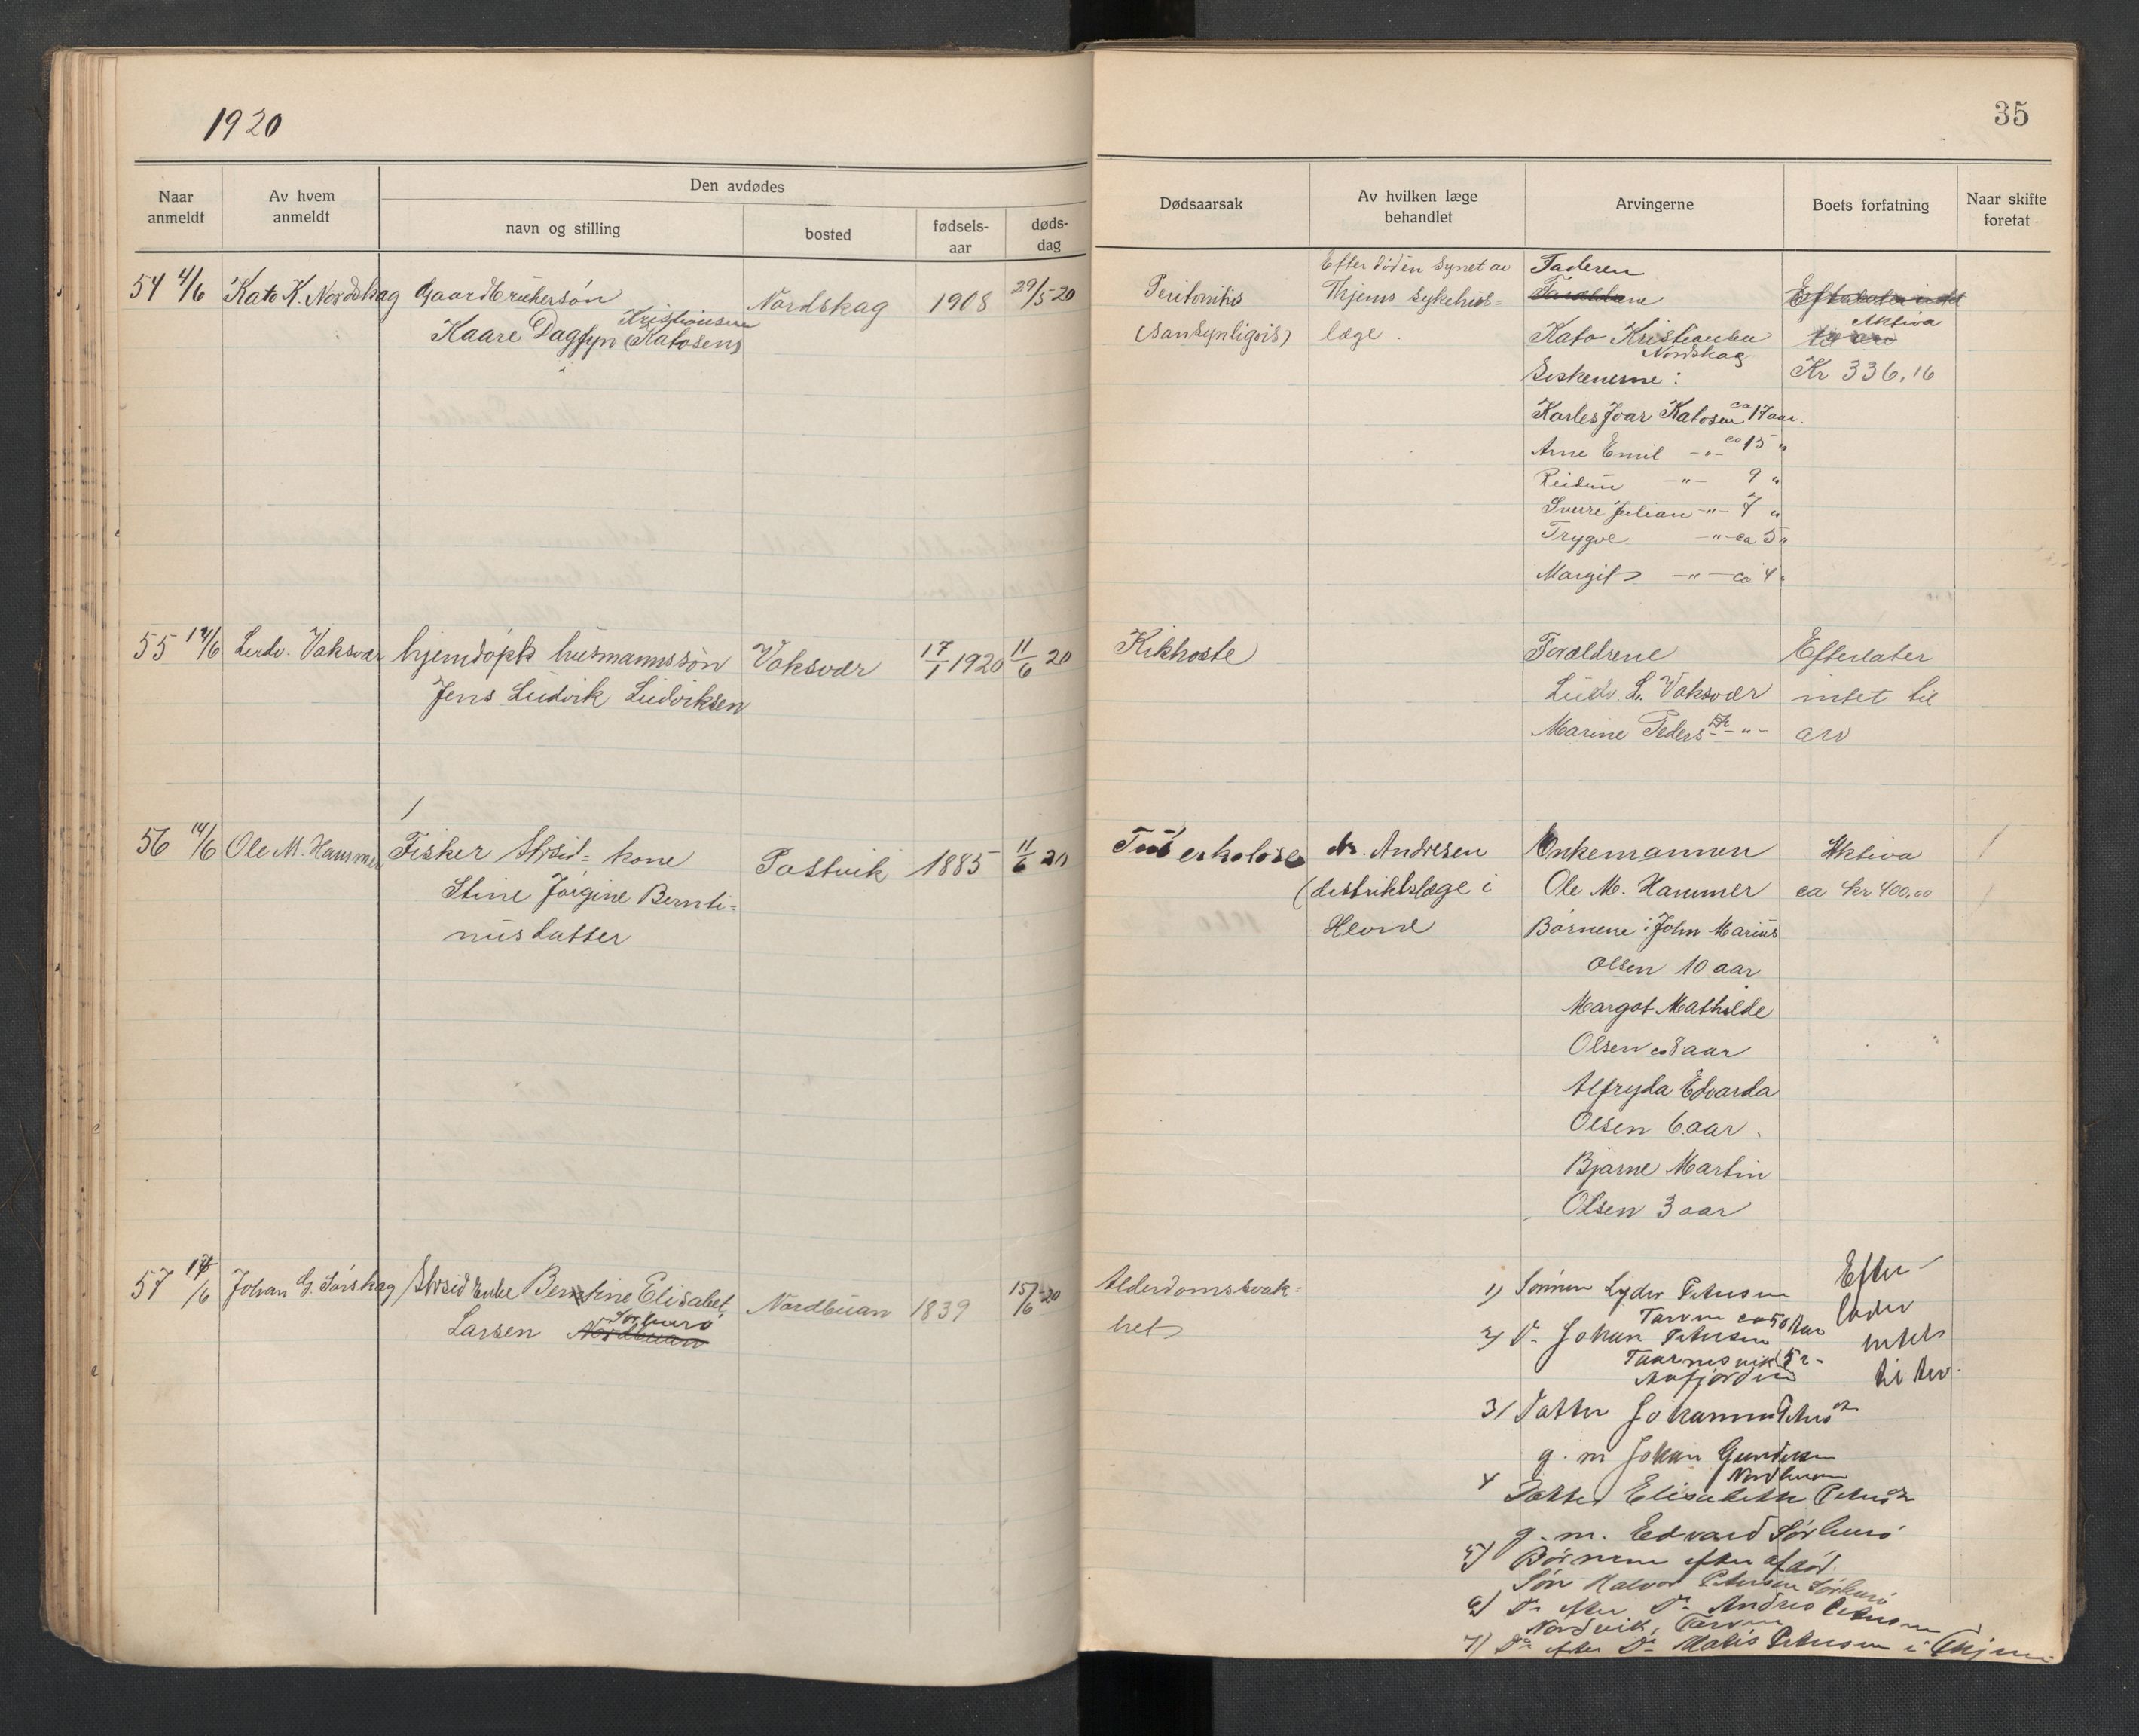 1920
35
Naar anmeldt
Av hvem anmeldt
Den avdødes
navn og stilling
bosted
fødsels-aar
døds-dag
Dødsaarsak
Av hvilken læge behandlet
Arvingerne
Boets forfatning
Naar skifte foretat
54 4/6 Kato K. Nordskag Gaardbrukersøn Nordskag 1908 29/5-20
Kristiansen
Kaare Dagfyn (Katosen)
Peritonitis
(sansynligvis)
Efter døden synet av
Thjems sykehus=
læge.
Faderen
Forældrene
Kato Kristiansen
Nordskag
Søskenerne:
Karles Joar Katosen ca 17 aar.
Arne Emil -"- ca 15 "
Reidun -"- 9 "
Sverre Julian -"- 7 "
Trygve -"- ca 5 "
Margit -"- ca 4 "
Efterlater intet
til arv
Aktiva
Kr 336,16
55 14/6 Ludv. Vaksvær hjemdøpt husmannssøn Vaksvær 17/1 1920 11/6 20
Jens Ludvik Ludviksen
Kikhoste
Forældrene
Ludv. L. Vaksvær
Marine Pedersdtr -"-
Efterlater
intet til
arv
56 14/6 Ole M. Hammer Fisker Strsid= kone Pastvik 1885 11/6 20
Stine Jørgine Bernti=
nusdatter
Tuberkolose
dr. Andresen
(distriktslæge i
Hevne
Enkemannen
Ole M. Hammer
Børnene: John Marius
Olsen 10 aar
Margot Mathilde
Olsen ca 8 aar
Alfryda Edvarda
Olsen 6 aar.
Bjarne Martin
Olsen 3 aar
Aktiva
ca kr 400,00
57 17/6 Johan G. Sørskag Strsid Enke Berntine Elisabet Nordbuan 1839 15/6-20
Sørburø
Larsen Nordbuan
Alderdomssvak=
het
1) Sønnen Lyder Petersen
Tarven ca 50 aar
2) Do Johan Petersen
52 -
Aafjorden
3) Datter Johanna Petersdr
g. m. Johan Gundersen
Nordbuan
4 Datter Elisabeth Petersdr
g. m. Edvard Sørburø
5) Børnene efter afdød
Søn Halvor Petersen Sørburø
6) Do efter Do Andreas Petersen
Nordvik, Tarven
7) Do efter Do Mathis Petersen i Thjem
Efter-
lader
intet
til Arv.